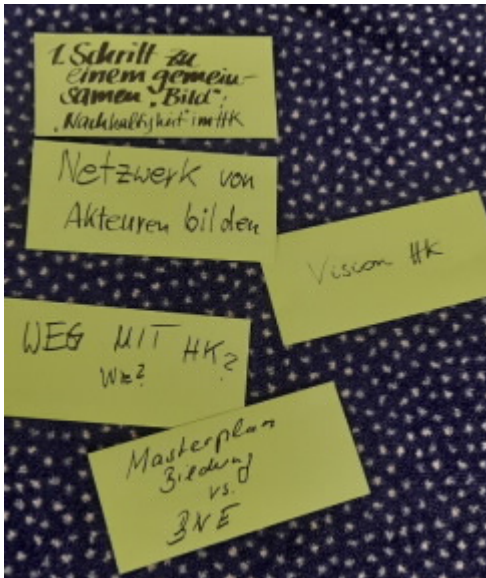 1. Schritt zu
einem gemein-
samen "Bild":
"Nachhaltigkeit" im HK
Netzwerk von
Akteuren bilden
Vision HK
WEG MIT HK?
Masterplan
Bildung
vs.
BNE